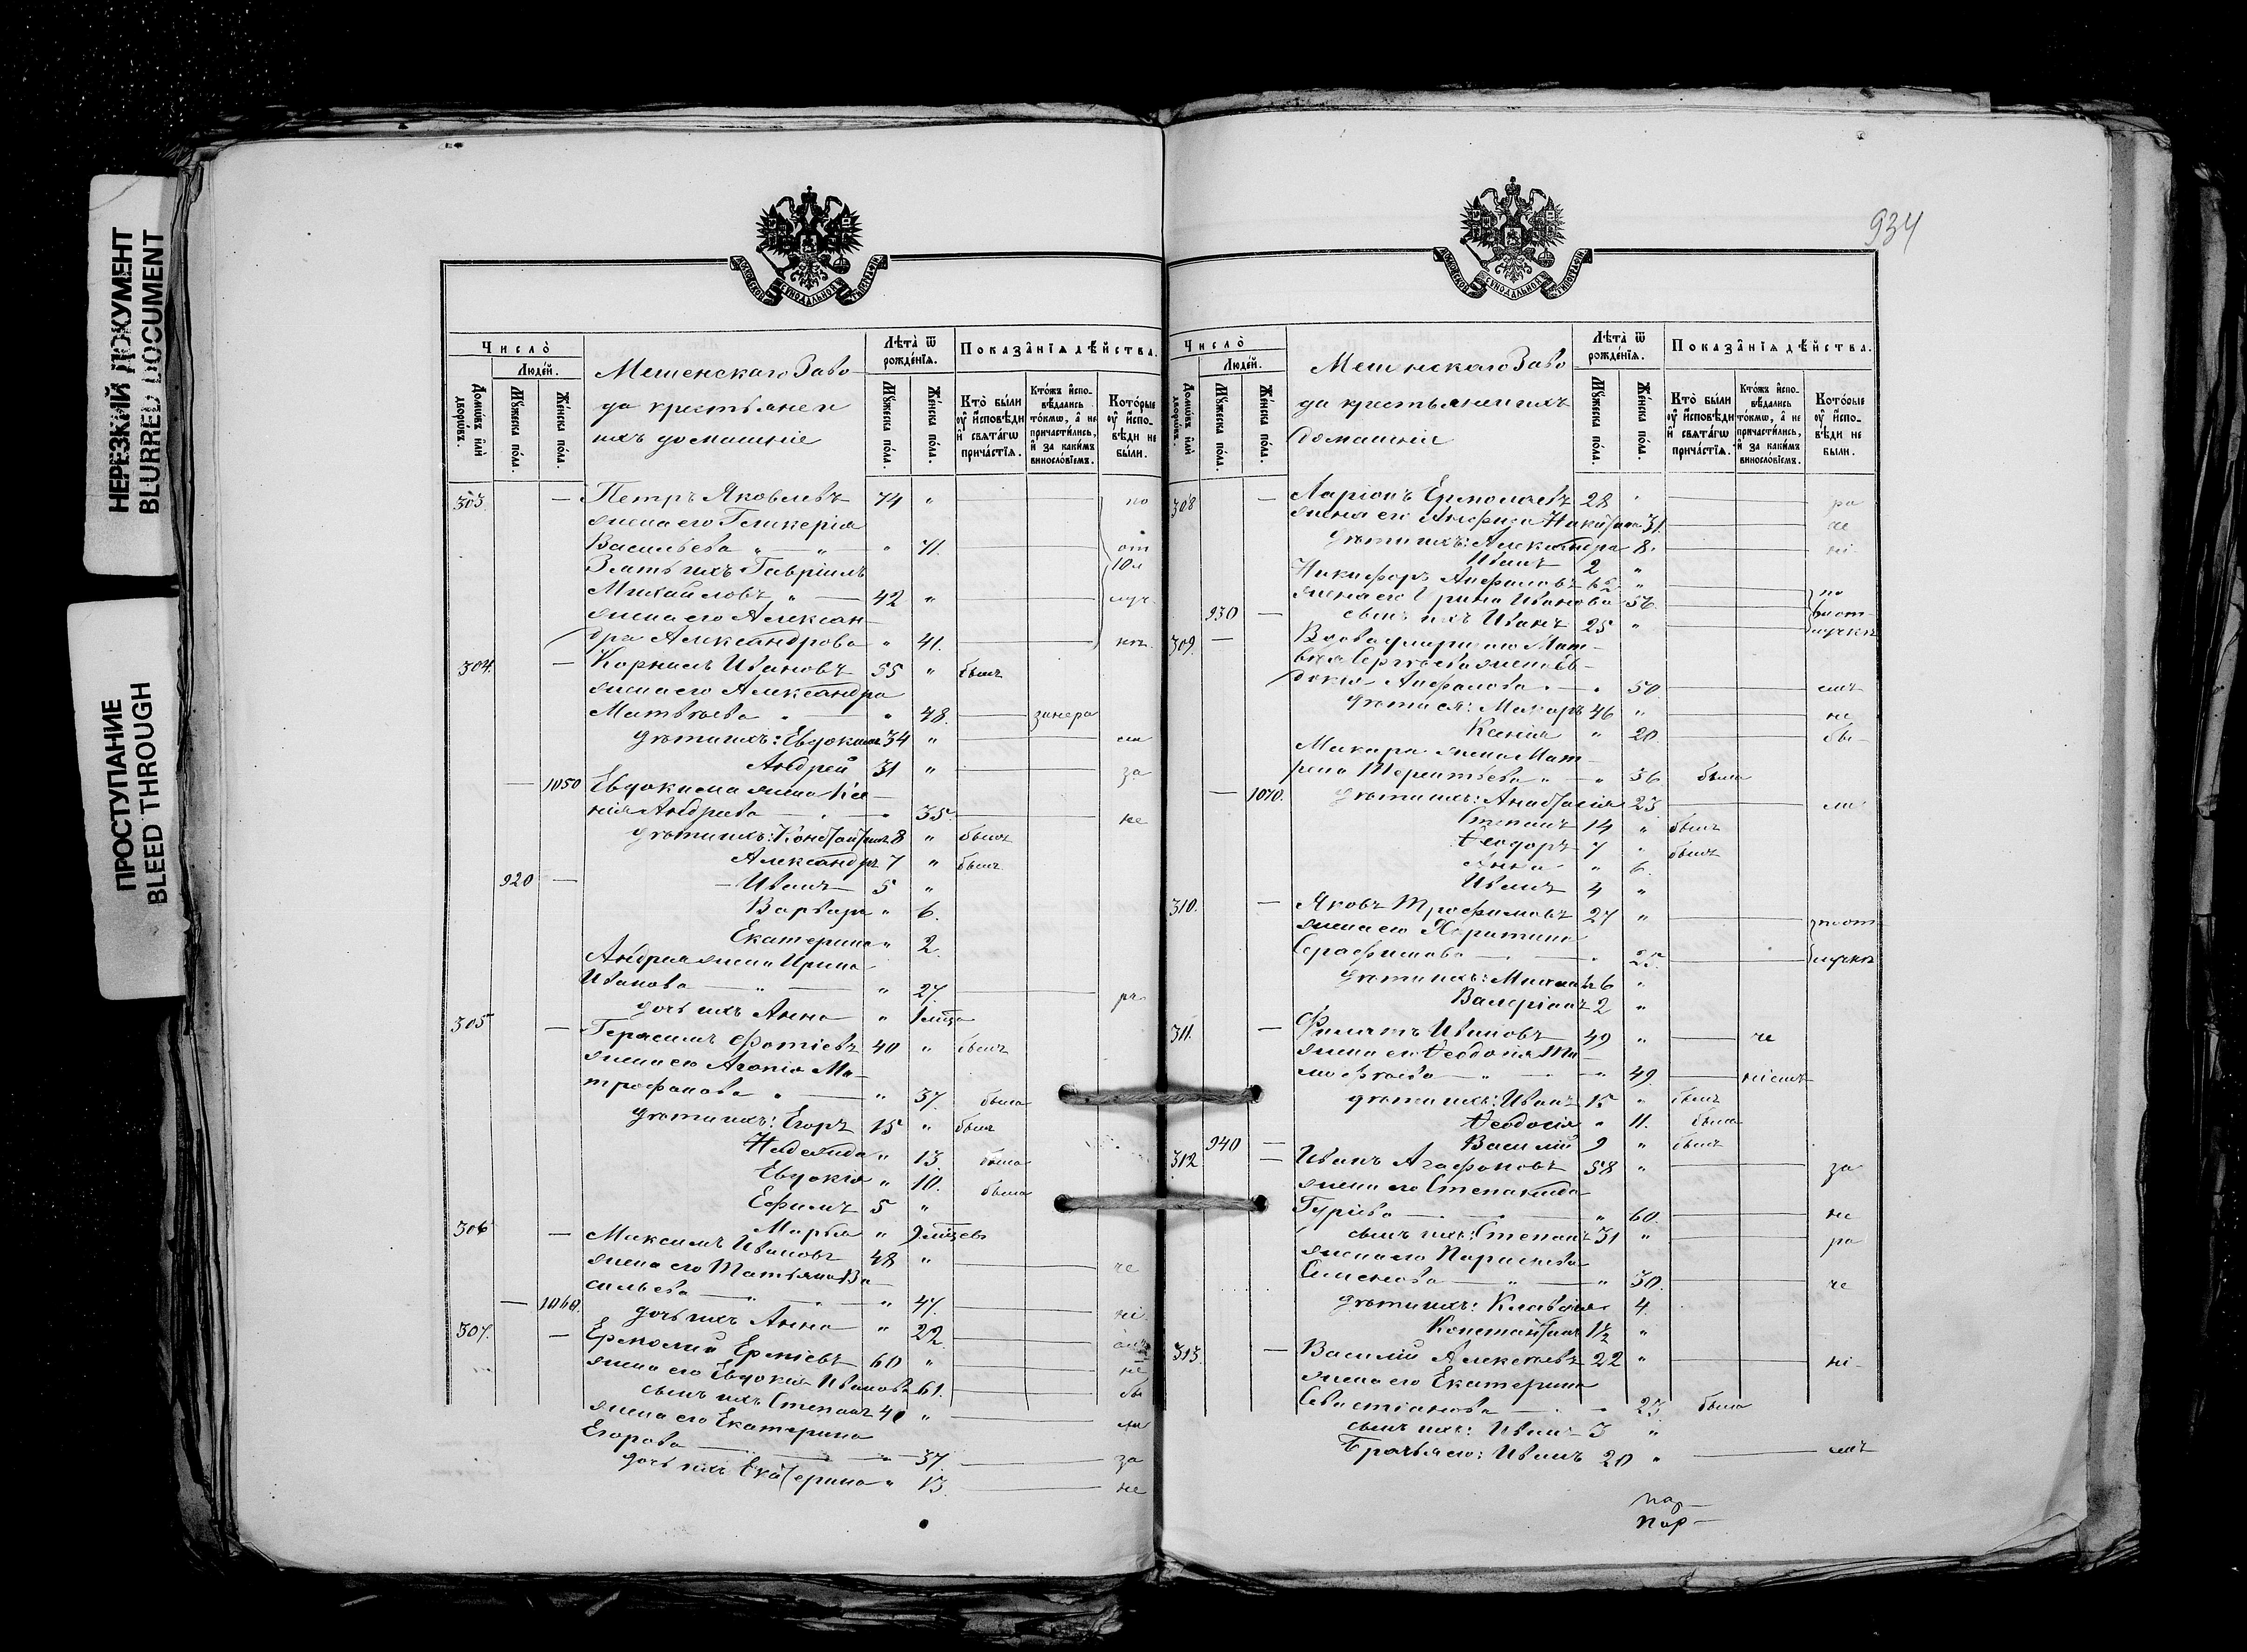 НЕРЕЗКИЙ ДОКУМЕНТ
BLURRED DOCUMENT
ПРОСТУПАНИЕ
BLEED THROUGH
МОСКОВСКОЙ СѴНОДАЛЬНОЙ ТИПОГРАФІИ
Число̀
Людей.
Домѡвъ илѝ дворѡвъ.
Мꙋжеска пола.
Женска пола.
Мешенскаго Заво-
да крестьяне и
ихъ домашніе
Лѣта̀ ѿ рожденїѧ.
Мꙋжеска пола.
Женска пола.
Показанїѧ дѣйства.
Кто̀ были ᲂу҆ и҆сповѣди и҆ свѧтагѡ причастїѧ.
Ктожъ и҆спо-вѣдались токмѡ, а҆ не причастились, и҆ за какимъ винословїемъ.
Которые ᲂу҆ и҆спо-вѣди не были.
303. — Петръ Яковлевъ 74 " по
жена его Гликерія
Васильева " — " — " 71. от
Зять ихъ Гавріилъ Юл
Михайловъ " — 42 " луч
жена его Алексан-
дра Александрова " 41. кѣ.
304. — Корнилъ Ивановъ 55 " былъ
жена его Александра
Матвѣева " — " 48. — занера
дѣти ихъ: Евдокимъ 34 "
Андрей 31 " за
— 1050 Евдокима жена Ксе-
нія Андреева — " — " 35. не
дѣти ихъ: Константинъ 8 " былъ
Александръ 7 " былъ
920 — Иванъ 5 "
Варвара " 6.
Екатерина " 2.
Андрея жена Ирина
Иванова — " — " 27. ра
дочь ихъ Анна " 1 мца
305 — Герасимъ Фотіевъ 40 " былъ
жена его Агапія Ми-
трофанова " — " 37. была
дѣти ихъ: Егоръ 15 " былъ
Надежда " 13. была
Евдокія " 10. была
Ефимъ 5 "
Марья " 9 мцевъ
306 — Максимъ Ивановъ 48 "
жена его Татьяна Ва- че
сильева — " — " — " 47.
— 1060. дочь ихъ Анна " 22 ні
307. — Ермолай Ерміевъ 60 "
жена его Евдокія Иванова 61. не
сынъ ихъ Степанъ 40 " бы
жена его Екатерина
Егорова — " — " 37. за
дочь ихъ Екатерина " 13. не
934
МОСКОВСКОЙ СѴНОДАЛЬНОЙ ТИПОГРАФІИ
Число̀
Людей.
Домѡвъ илѝ дворѡвъ.
Мꙋжеска пола.
Женска пола.
Мешенскаго Заво-
да крестьяне и ихъ
домашніе
Лѣта̀ ѿ рожденїѧ.
Мꙋжеска пола.
Женска пола.
Показанїѧ дѣйства.
Кто̀ были ᲂу҆ и҆сповѣди и҆ свѧтагѡ причастїѧ.
Ктожъ и҆спо-вѣдались токмѡ, а҆ не причастились, и҆ за какимъ винословїемъ.
Которые ᲂу҆ и҆спо-вѣди не были.
308 — Ларіонъ Ермолаевъ 28 " ра
жена его Анфиза Никитина 31. че
дѣти ихъ: Александра 8. ні
Иванъ 2 "
Никифоръ Анфиловъ 62 " по
жена его Ирина Иванова 56.
930 — сынъ ихъ Иванъ 25 " лучкѣ
309. — Вдова умершаго Мат-
вѣя Сергѣева жена Ев-
докія Анфилова " — " 50. емъ
дѣти ея: Макаръ 46 " не
Ксенія " 20. бы
Макара жена Мат-
рена Терентьева " — " 36 была
— 1070. дѣти ихъ: Анастасія 23. ли
Степанъ 14 " былъ
Ѳеодоръ 7 " былъ
Анна " 6.
Иванъ 4 "
310. — Яковъ Трофимовъ 27 " по от
жена его Харитина
Серафимова — " — " 25. лучкѣ
дѣти ихъ: Михаилъ 6 "
Валеріанъ 2 "
311. — Филатъ Ивановъ 49 " — че
жена его Ѳеодосія Ти-
моѳеева — " — " 49. — ніемъ
дѣти ихъ: Иванъ 15 " былъ
Ѳеодосія " 11. была
940 — Василій 9 " былъ
312 — Иванъ Агафоновъ 58 " за
жена его Степанида
Гуріева — " — " 60. не
сынъ ихъ: Степанъ 31 " ра
жена его Парасковья
Симонова — " — " 30. че
дѣти ихъ: Клавдія 4.
Константинъ 1½ "
313. — Василій Алексѣевъ 22 " ні-
жена его Екатерина
Севастіанова — " — " 23. была
сынъ ихъ: Иванъ 3 "
Братья его: Иванъ 20 " емъ
Пар-